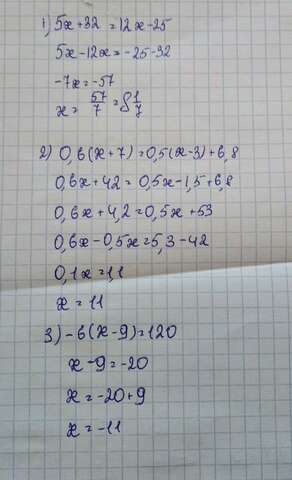 1) 5x+32=12x-25
5x-12x=-25-32
-7x=-57
x=57/7=8 1/7
2) 0,6(x+7)=0,5(x-3)+6,8
0,6x+42=0,5x-1,5+6,8
0,6x+4,2=0,5x+53
0,6x-0,5x=5,3-42
0,1x=1,1
x=11
3) -6(x-9)=120
x-9=-20
x=-20+9
x=-11